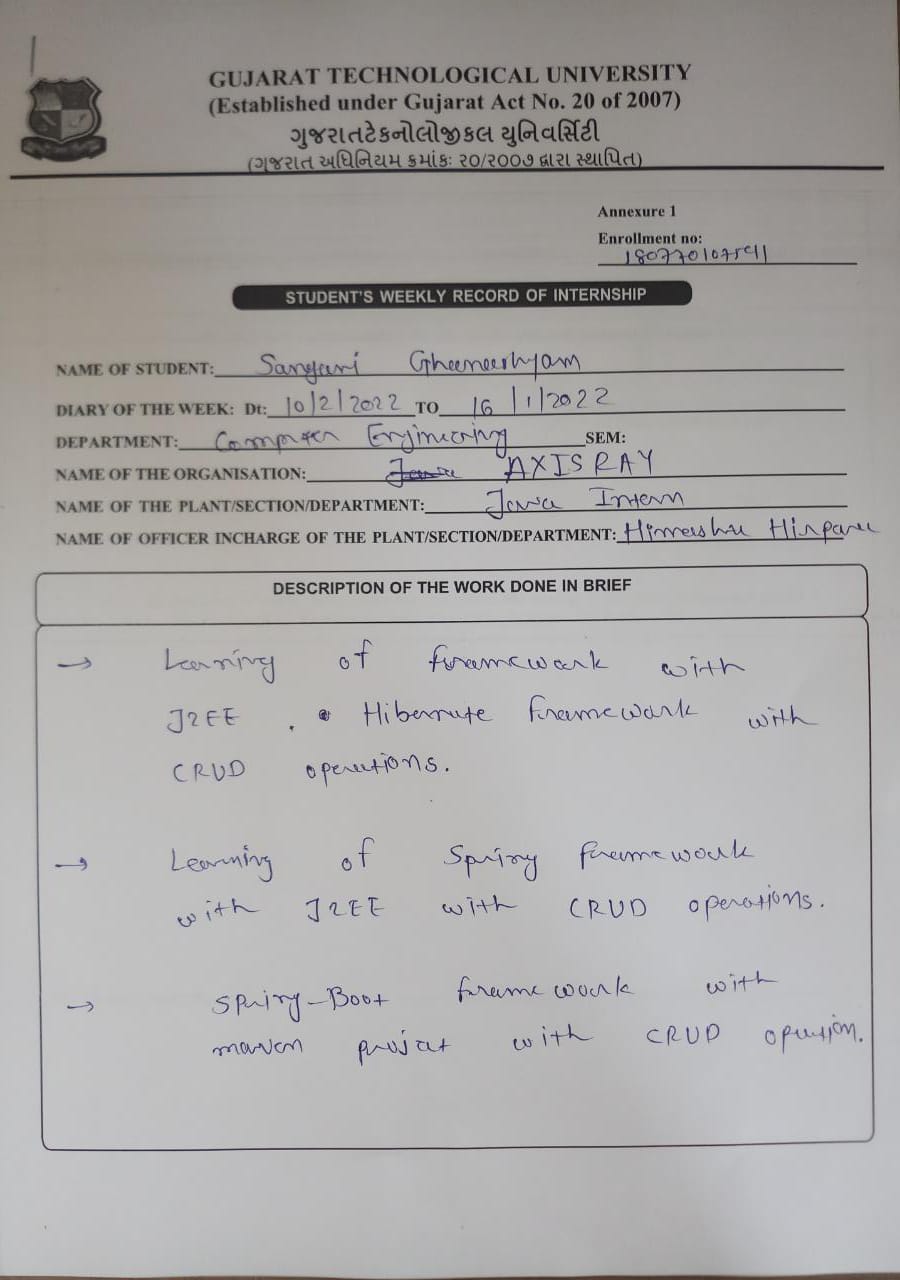 GUJARAT TECHNOLOGICAL UNIVERSITY
(Established under Gujarat Act No. 20 of 2007)
ગુજરાતટેકનોલોજીકલ યુનિવર્સિટી
(ગુજરાત અધિનિયમ ક્રમાંકઃ ૨૦/૨૦૦૭ દ્વારા સ્થાપિત)
Annexure 1
Enrollment no:
180770107541
STUDENT'S WEEKLY RECORD OF INTERNSHIP
NAME OF STUDENT:
DIARY OF THE WEEK: Dt: 10/2/2022 TO 16/1/2022
DEPARTMENT: Computer Enginering SEM:
NAME OF THE ORGANISATION: AXISRAY
NAME OF THE PLANT/SECTION/DEPARTMENT: Java Intern
NAME OF OFFICER INCHARGE OF THE PLANT/SECTION/DEPARTMENT:
DESCRIPTION OF THE WORK DONE IN BRIEF
→ Learning of framework with
J2EE . Hibernate framework with
CRUD operations.
→ Learning of Spring framework
with J2EE with CRUD operations.
→ Spring-Boot framework with
maven project with CRUD opration.